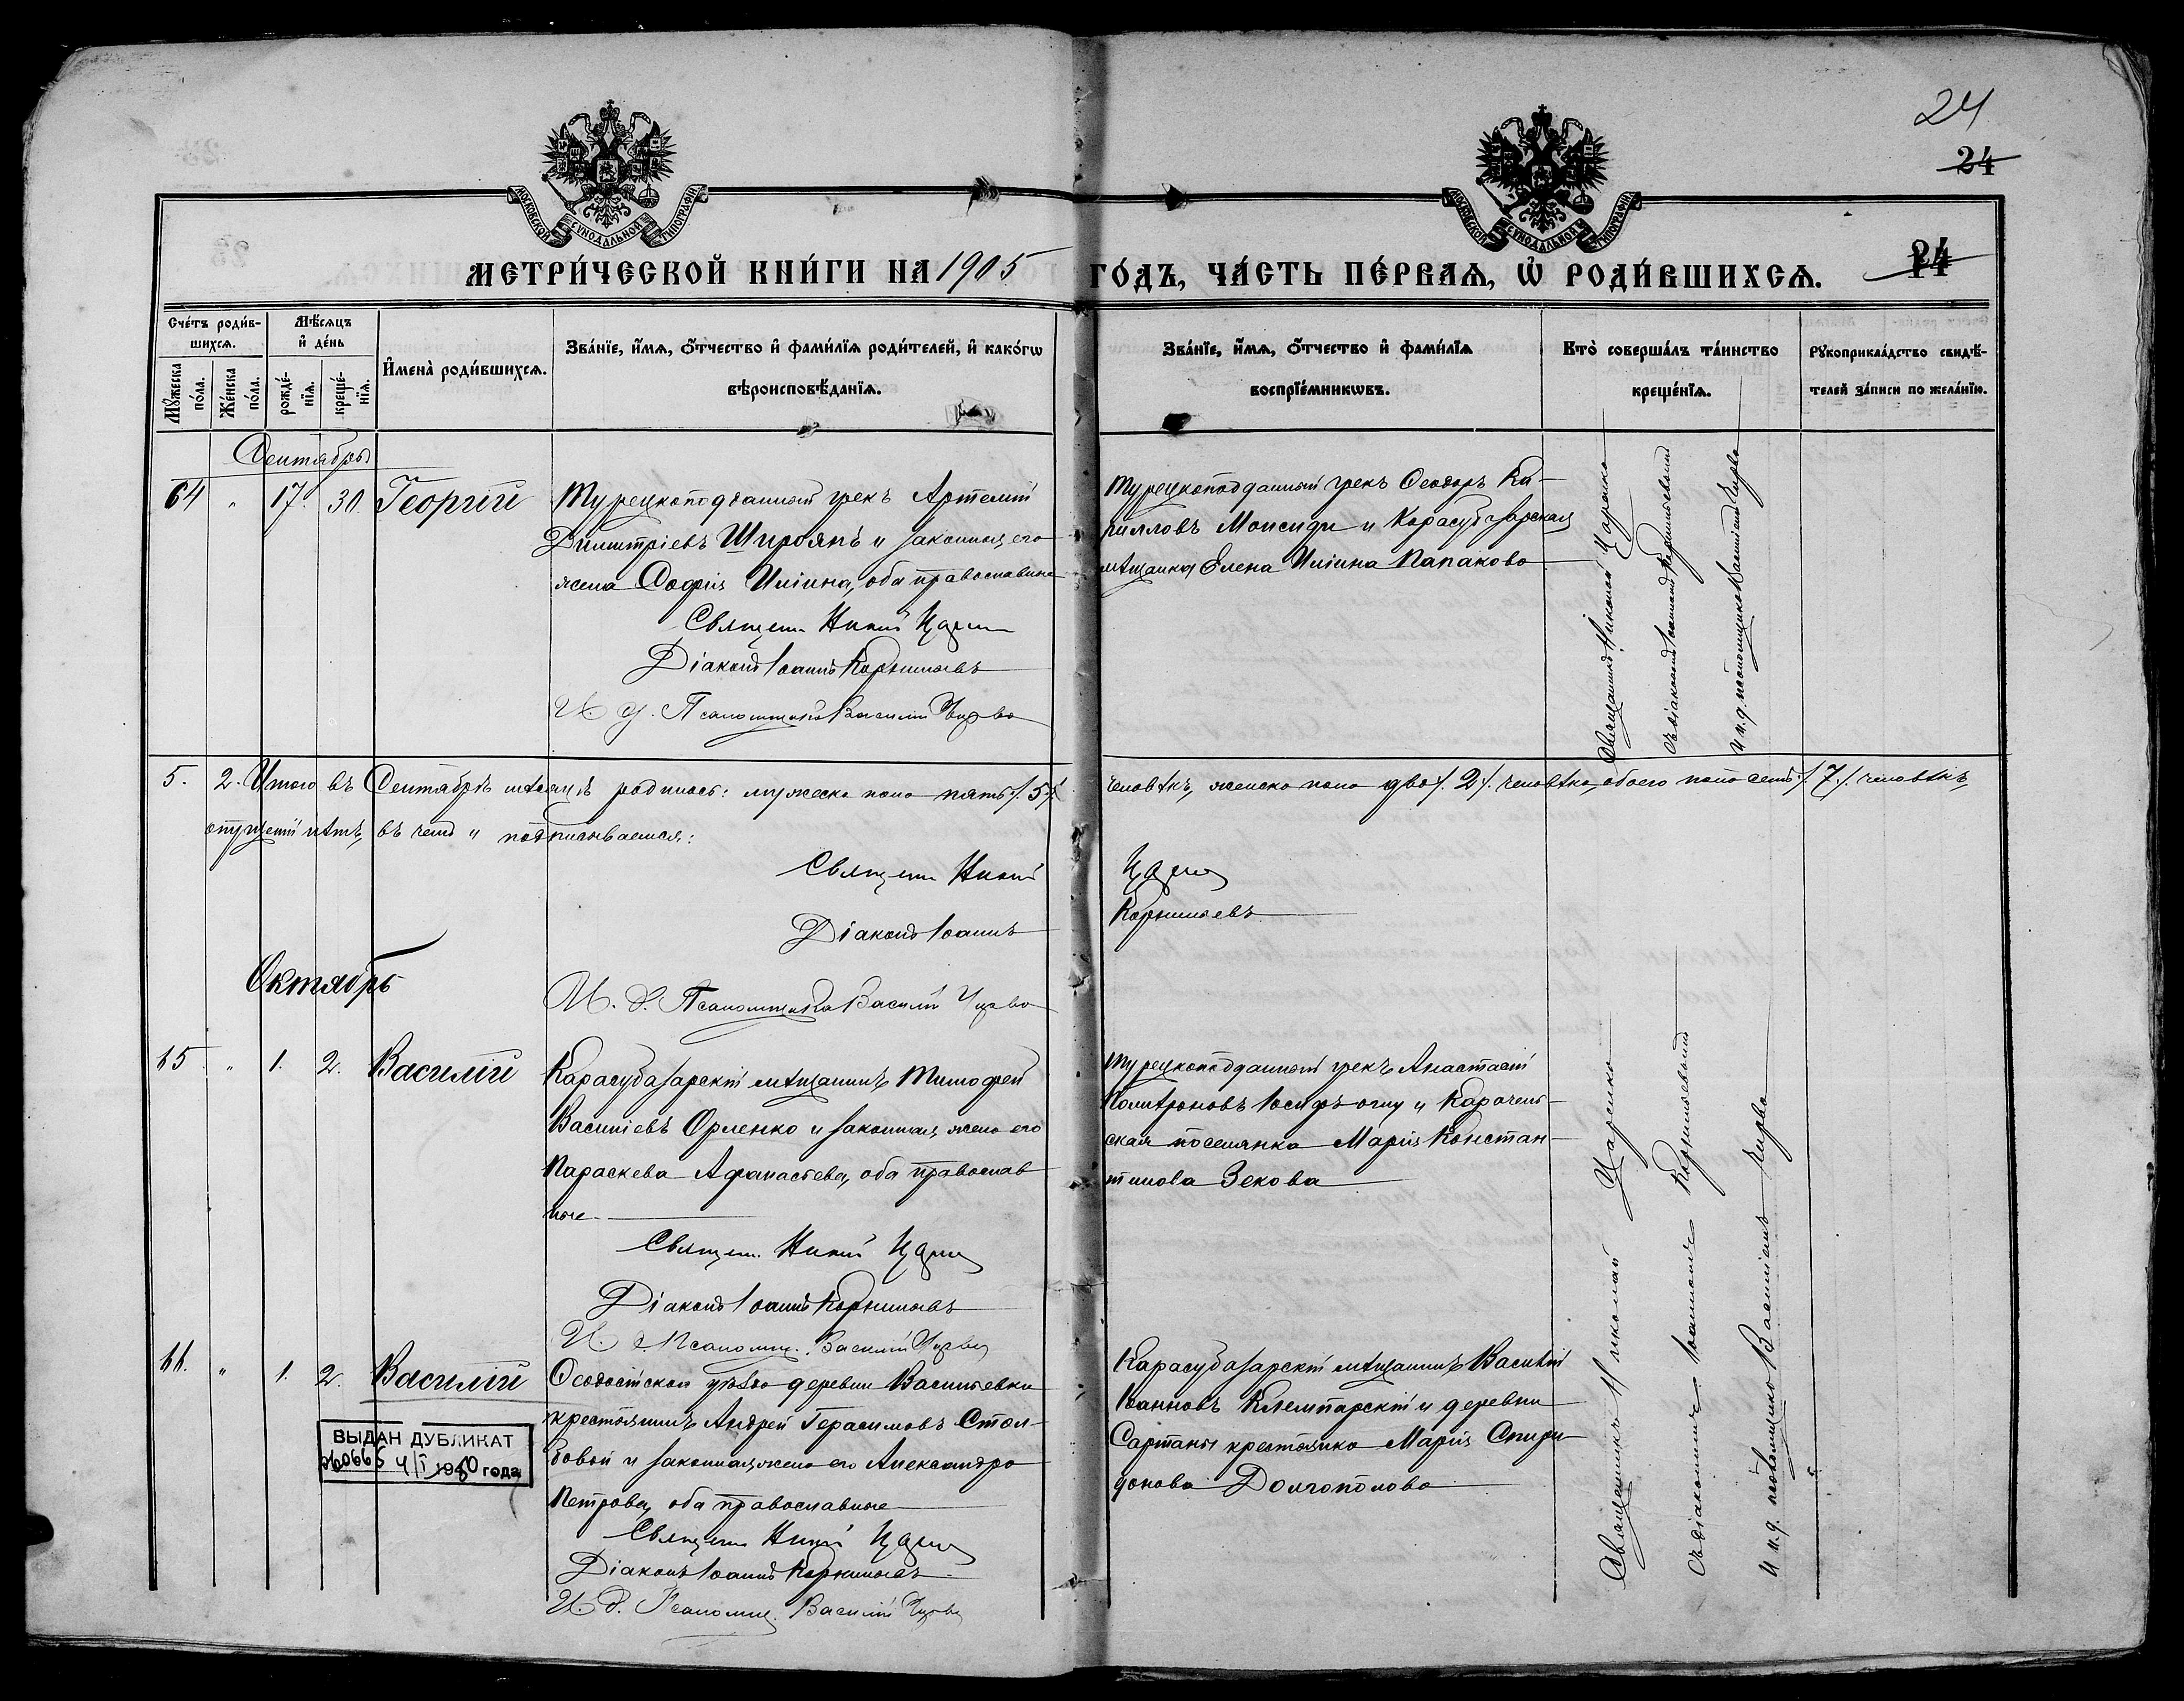 24
24
МОСКОВСКОЙ СѴНОДАЛЬНОЙ ТИПОГРАФІИ
МОСКОВСКОЙ СѴНОДАЛЬНОЙ ТИПОГРАФІИ
МЕТРИ́ЧЕСКОЙ КНИ́ГИ НА 1905 ГО́ДЪ, ЧА́СТЬ ПЕ́РВАѦ, Ѡ҆ РОДИ́ВШИХСѦ.
24
Сче́тъ роди́в-
шихсѧ.
Мѣ́сѧцъ
и҆ де́нь
Мꙋ́жеска по́ла.
Же́нска по́ла.
рожде́-
нїѧ.
креще́-
нїѧ.
И҆мена̀ роди́вшихсѧ.
Зва́нїе, и҆́мѧ, ѻ҆́тчество и҆ фами́лїѧ роди́телей, и҆ како́гѡ
вѣроисповѣ́данїѧ.
Зва́нїе, и҆́мѧ, ѻ҆́тчество и҆ фами́лїѧ
воспрїе́мникѡвъ.
Кто̀ соверша́лъ та́инство
креще́нїѧ.
Рꙋкоприкла́дство свидѣ́-
телей за́писи по жела́нїю.
Сентябрь
64 " 17. 30. Георгій
Турецкоподданный грекъ Артемій
Димитріевъ Широянъ и законная его
жена Софія Иліина, оба православные
Священ. Никол. Царен
Діаконъ Іоаннъ Корнильевъ
И. д. Псаломщика Василій Чирва
Турецкоподданный грекъ Ѳеодоръ Ки-
рилловъ Моисиди и Карасубазарская
мѣщанка Елена Иліина Папакова
Священникъ Николай Царенко
съ діакономъ Іоанномъ Корнильевымъ
и и.д. псаломщика Василіемъ Чирва
5. 2. Итого въ Сентябрѣ мѣсяцѣ родилось: мужеска пола пять ./. 5 ./. человѣкъ, женска пола два ./. 2 ./. человѣка, обоего пола семь ./. 7 ./. человѣкъ,
опущеній нѣтъ, въ чемъ и подписываемся:
Священ. Никол. Царен
Діаконъ Іоаннъ Корнильевъ
И. д. Псаломщика Василій Чирва
Октябрь
65 " 1. 2. Василій
Карасубазарскій мѣщанинъ Тимофей
Васильевъ Орленко и законная жена его
Параскева Афанасьева, оба православ
ные
Священ. Никол. Царен
Діаконъ Іоаннъ Корнильевъ
И. д. Псаломщ. Василій Чирва
Турецкоподданный грекъ Анастасій
Іосифъ оглу и Карачель-
ская поселянка Марія Констан-
тинова Зекова
66. " 1. 2. Василій
Ѳеодосійскаго уѣзда деревни Васильевки
крестьянинъ Андрей Герасимовъ Стол-
бовой и законная жена его Александра
Петрова, оба православные
Священ. Никол. Царен
Діаконъ Іоаннъ Корнильевъ
И. д. Псаломщ. Василій Чирва
Карасубазарскій мѣщанинъ Василій
Іоанновъ и деревни
Сартаны крестьянка Марія Спири
донова Долгополова
Священникъ Николай Царенко
съ діакономъ Іоанномъ Корнильевымъ
и и.д. псаломщика Василіемъ Чирва
ВЫДАН ДУБЛИКАТ
4/I 1980 года